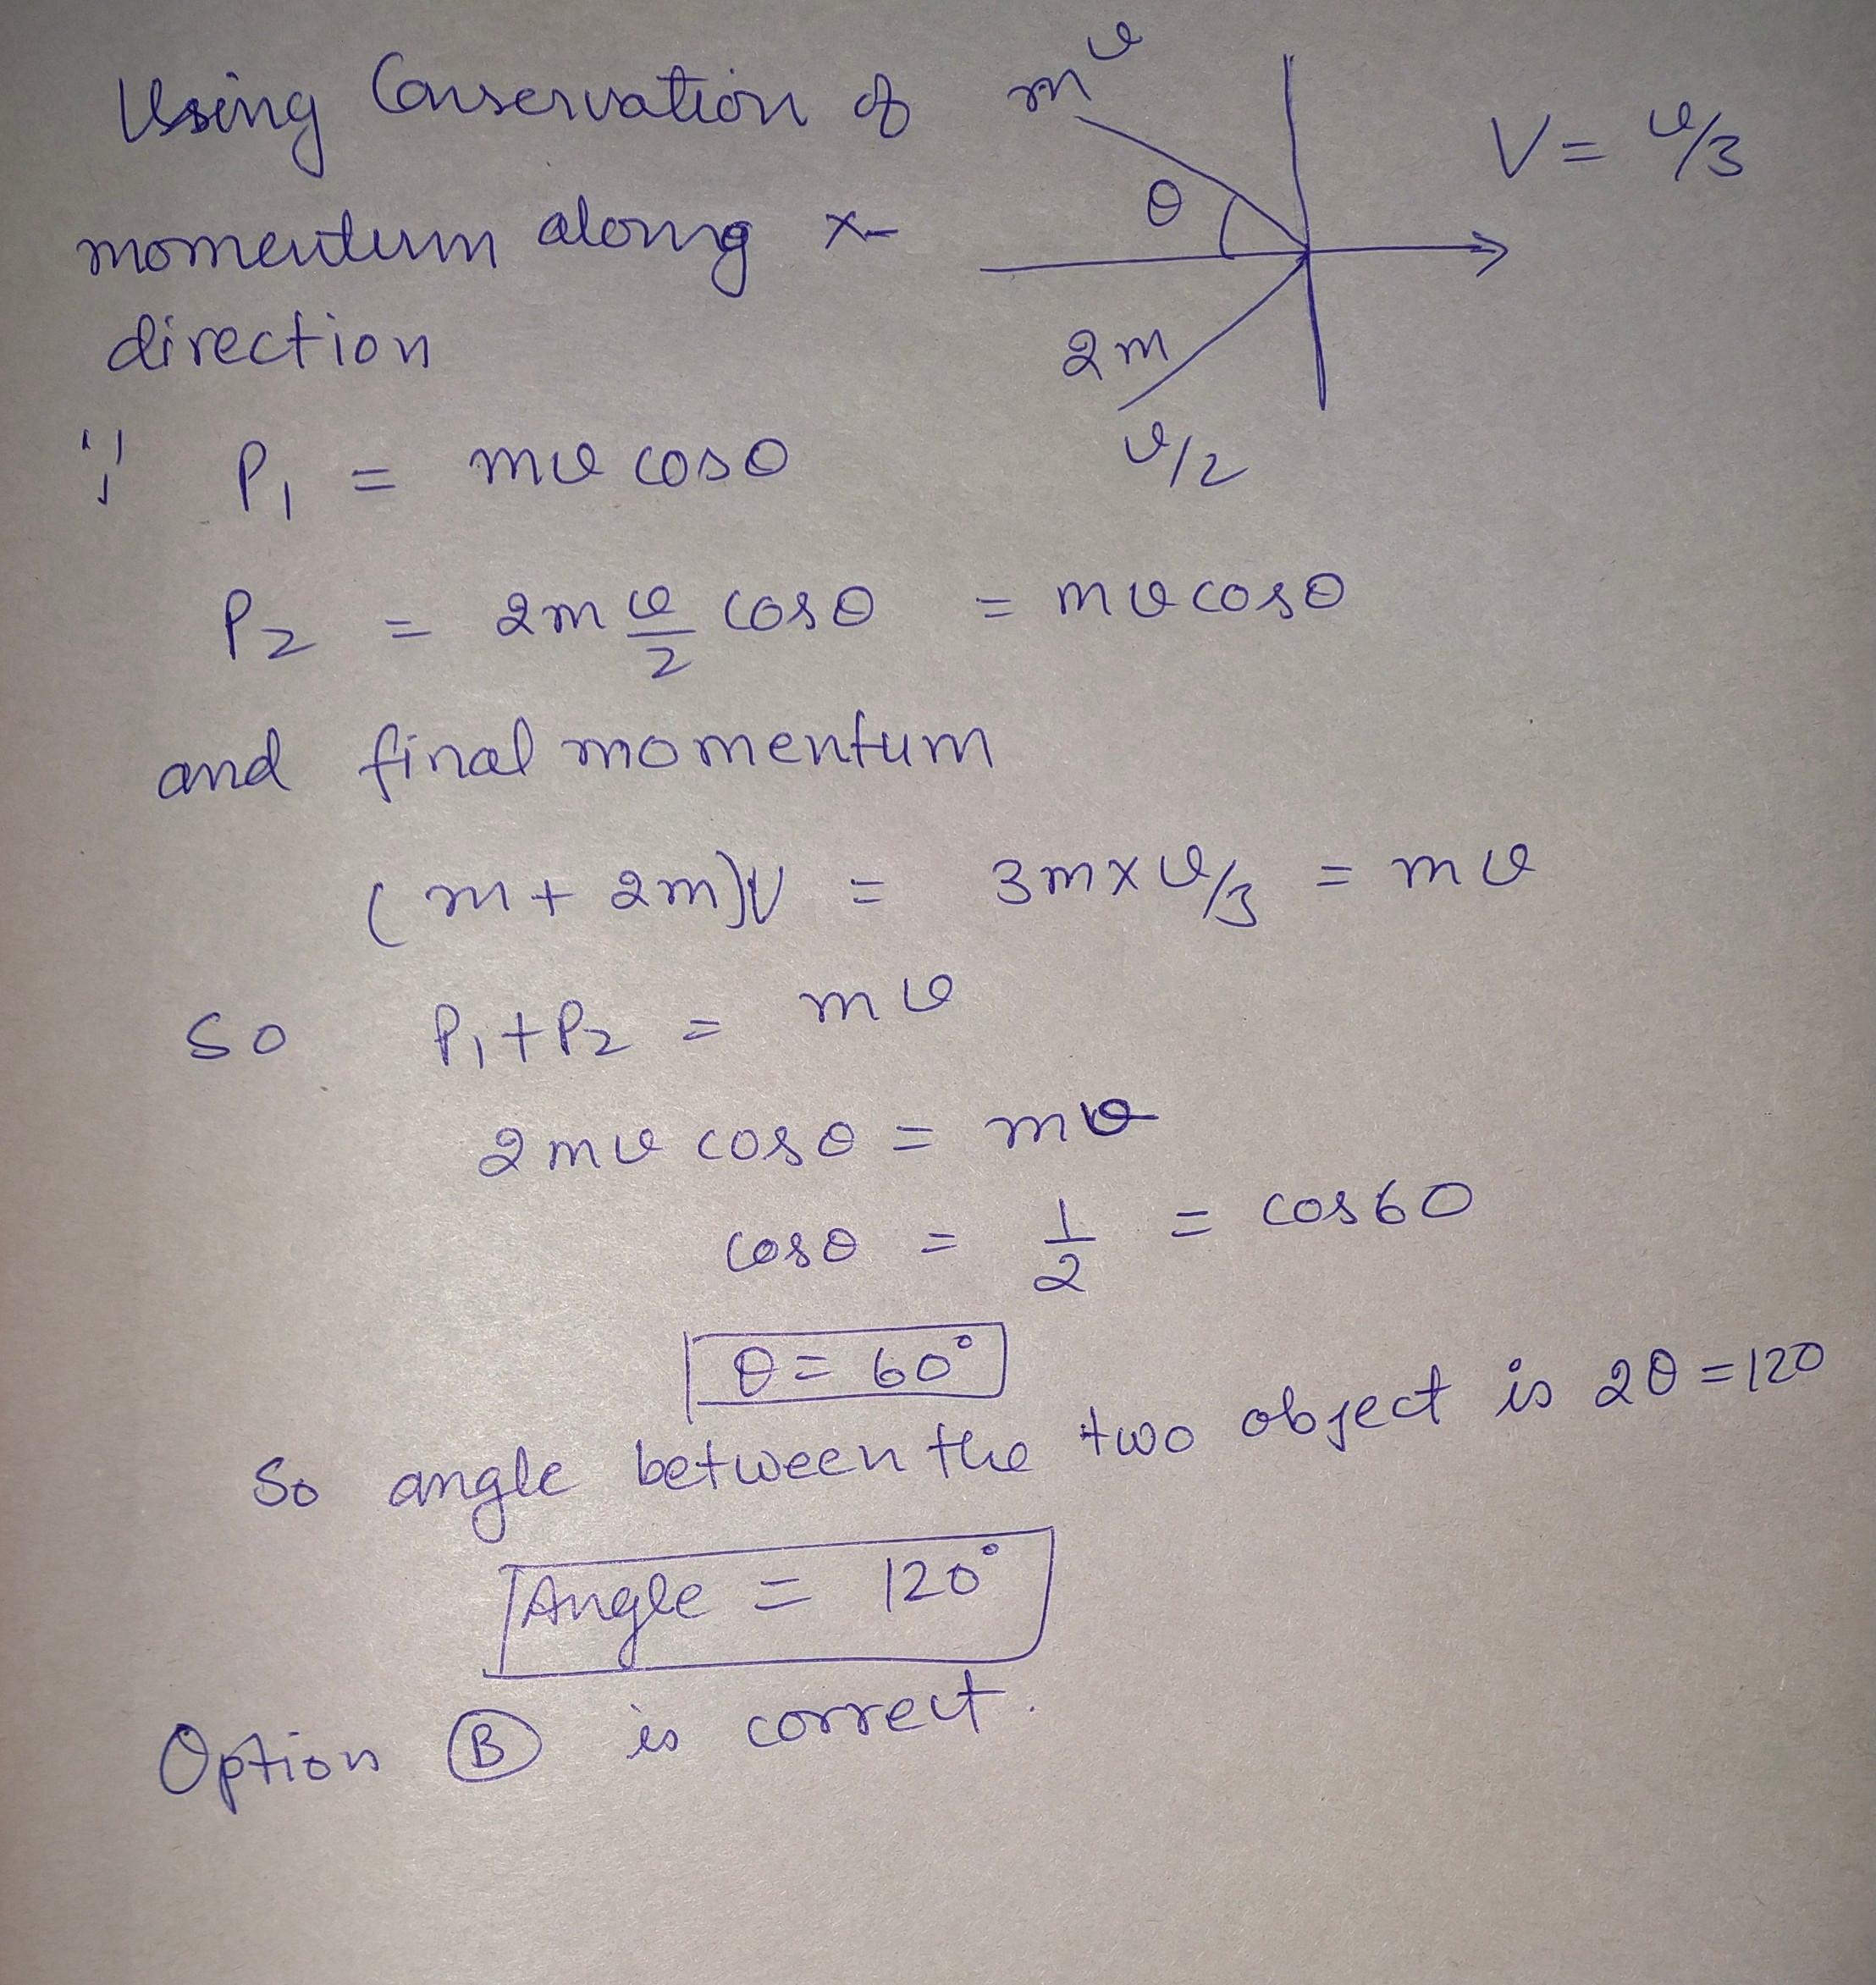 Using Conservation of
momentum along x-
direction
m v
θ
V = v/3
2m
v/2
∵ P₁ = mv cosθ
P₂ = 2m v/2 cosθ = mv cosθ
and final momentum
(m + 2m)V = 3m × v/3 = mv
So P₁ + P₂ = mv
2mv cosθ = mv
cosθ = 1/2 = cos60
θ = 60°
So angle between the two object is 2θ = 120
Angle = 120°
Option B is correct.